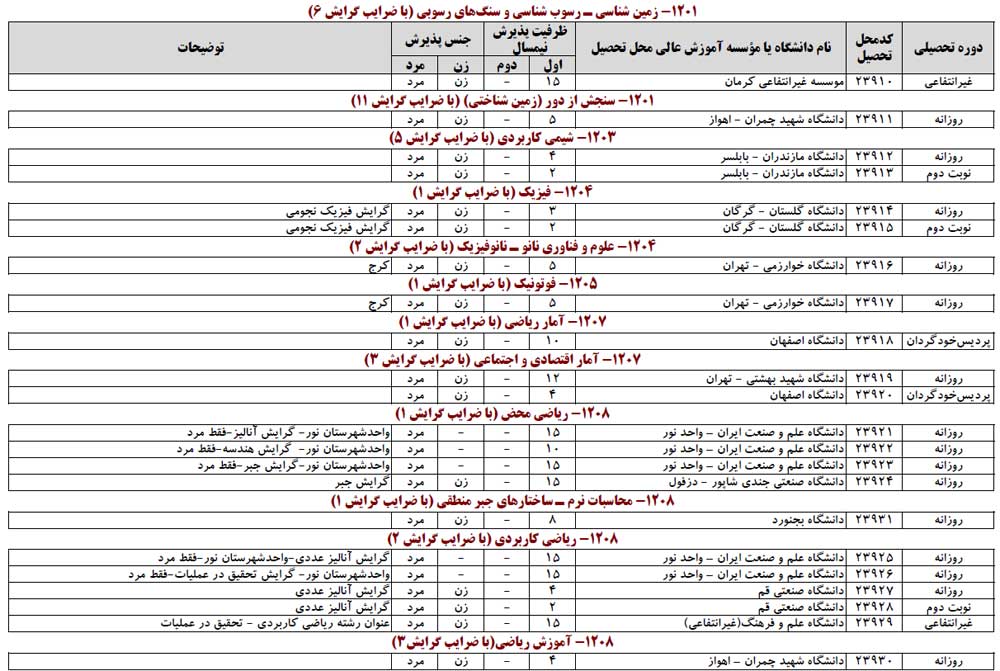 ۱۲۰۱- زمین شناسی ــ رسوب شناسی و سنگ‌های رسوبی (با ضرایب گرایش ۶)
دوره تحصیلی کدمحل تحصیل نام دانشگاه یا مؤسسه آموزش عالی محل تحصیل ظرفیت پذیرش نیمسال جنس پذیرش توضیحات
اول دوم زن مرد
غیرانتفاعی ۲۳۹۱۰ موسسه غیرانتفاعی کرمان ۱۵ - زن مرد
۱۲۰۱- سنجش از دور (زمین شناختی) (با ضرایب گرایش ۱۱)
روزانه ۲۳۹۱۱ دانشگاه شهید چمران - اهواز ۵ - زن مرد
۱۲۰۳- شیمی کاربردی (با ضرایب گرایش ۵)
روزانه ۲۳۹۱۲ دانشگاه مازندران - بابلسر ۴ - زن مرد
نوبت دوم ۲۳۹۱۳ دانشگاه مازندران - بابلسر ۲ - زن مرد
۱۲۰۴- فیزیک (با ضرایب گرایش ۱)
روزانه ۲۳۹۱۴ دانشگاه گلستان - گرگان ۳ - زن مرد گرایش فیزیک نجومی
نوبت دوم ۲۳۹۱۵ دانشگاه گلستان - گرگان ۲ - زن مرد گرایش فیزیک نجومی
۱۲۰۴- علوم و فناوری نانو ــ نانوفیزیک (با ضرایب گرایش ۲)
روزانه ۲۳۹۱۶ دانشگاه خوارزمی - تهران ۵ - زن مرد کرج
۱۲۰۵- فوتونیک (با ضرایب گرایش ۱)
روزانه ۲۳۹۱۷ دانشگاه خوارزمی - تهران ۵ - زن مرد کرج
۱۲۰۷- آمار ریاضی (با ضرایب گرایش ۱)
پردیس‌خودگردان ۲۳۹۱۸ دانشگاه اصفهان ۱۰ - زن مرد
۱۲۰۷- آمار اقتصادی و اجتماعی (با ضرایب گرایش ۳)
روزانه ۲۳۹۱۹ دانشگاه شهید بهشتی - تهران ۱۲ - زن مرد
پردیس‌خودگردان ۲۳۹۲۰ دانشگاه اصفهان ۴ - زن مرد
۱۲۰۸- ریاضی محض (با ضرایب گرایش ۱)
روزانه ۲۳۹۲۱ دانشگاه علم و صنعت ایران - واحد نور ۱۵ - - مرد واحدشهرستان نور- گرایش آنالیز-فقط مرد
روزانه ۲۳۹۲۲ دانشگاه علم و صنعت ایران - واحد نور ۱۰ - - مرد واحدشهرستان نور- گرایش هندسه-فقط مرد
روزانه ۲۳۹۲۳ دانشگاه علم و صنعت ایران - واحد نور ۱۵ - - مرد واحدشهرستان نور-گرایش جبر-فقط مرد
روزانه ۲۳۹۲۴ دانشگاه صنعتی جندی شاپور - دزفول ۱۵ - زن مرد گرایش جبر
۱۲۰۸- محاسبات نرم ــ ساختارهای جبر منطقی (با ضرایب گرایش ۱)
روزانه ۲۳۹۳۱ دانشگاه بجنورد ۸ - زن مرد
۱۲۰۸- ریاضی کاربردی (با ضرایب گرایش ۲)
روزانه ۲۳۹۲۵ دانشگاه علم و صنعت ایران - واحد نور ۱۵ - - مرد گرایش آنالیز عددی-واحدشهرستان نور-فقط مرد
روزانه ۲۳۹۲۶ دانشگاه علم و صنعت ایران - واحد نور ۱۵ - - مرد واحدشهرستان نور- گرایش تحقیق در عملیات-فقط مرد
روزانه ۲۳۹۲۷ دانشگاه صنعتی قم ۴ - زن مرد گرایش آنالیز عددی
نوبت دوم ۲۳۹۲۸ دانشگاه صنعتی قم ۲ - زن مرد گرایش آنالیز عددی
غیرانتفاعی ۲۳۹۲۹ دانشگاه علم و فرهنگ(غیرانتفاعی) ۱۵ - زن مرد عنوان رشته ریاضی کاربردی - تحقیق در عملیات
۱۲۰۸- آموزش ریاضی(با ضرایب گرایش۳)
روزانه ۲۳۹۳۰ دانشگاه شهید چمران - اهواز ۴ - زن مرد